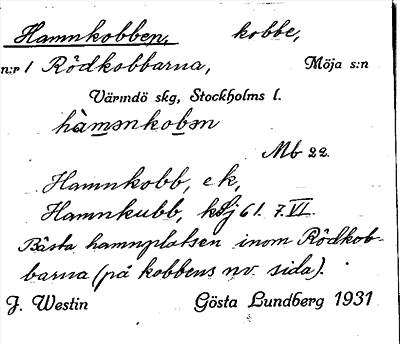 Hamnkobben, kobbe,
n:r 1 Rödkobbarna, Möja s:n
Värmdö skg, Stockholms l.
hàmənkobən
Mb 22.
Hamnkobb, ek,
Hamnkubb, 61. 7. VI.
Bästa hamnplatsen inom Rödkob-
barna (på kobbens nv. sida).
J. Westin Gösta Lundberg 1931